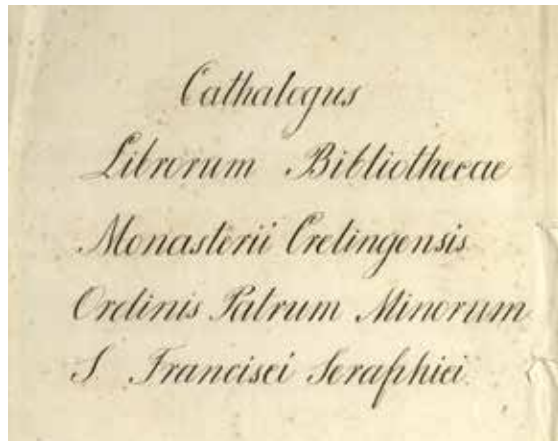 Cathalogus
Librorum Bibliothecae
Monasterii Cretingensis
Ordinis Patrum Minorum
S Francisci Seraphici.